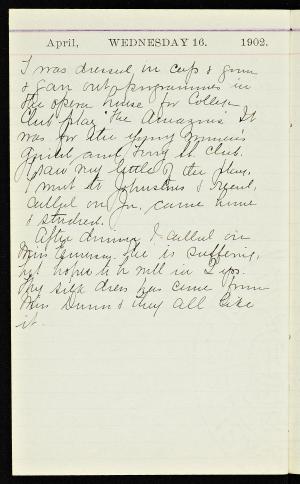 April, WEDNESDAY 16. 1902.
I was dressed in cap & gown
& gave out programmes in
the opera house for College
Club play "The Amazons" It
was for the young Women's
Guild and Long St. Club.
I saw very little of the play.
I went to Johnstons &
called on Jn. came home
& studied.
After dinner I called on
Miss She is suffering,
but hopes to be well in 2
My silk dress has come from
Miss Dunn & they all like
it.